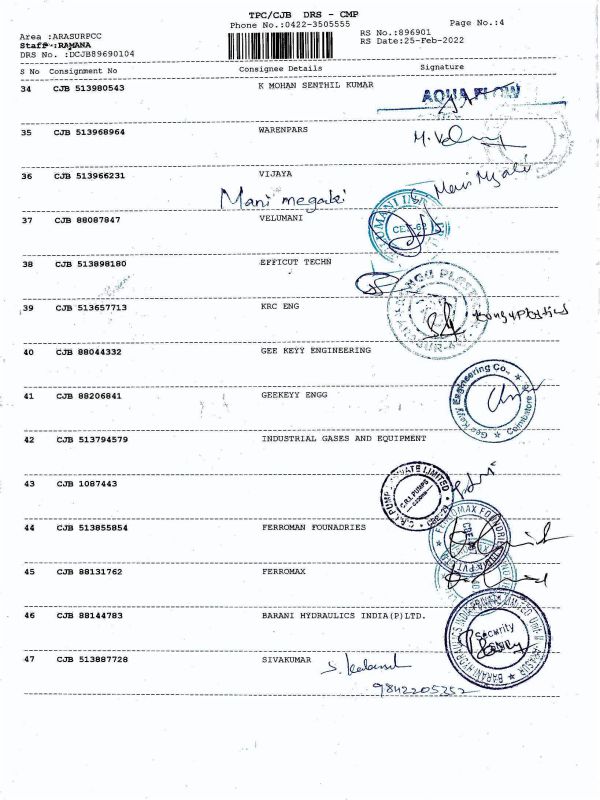 TPC/CJB DRS - CMP
Phone No.:0422-3505555
Page No.:4
Area :ARASURPCC
RS No.:896901
Staff :RAMANA
RS Date:25-Feb-2022
DRS No. :DCJB89690104
S No Consignment No Consignee Details Signature
34 CJB 513980543 K MOHAN SENTHIL KUMAR
AQUA FLOW
35 CJB 513968964 WARENPARS
36 CJB 513966231 VIJAYA
Mani
37 CJB 88087847 VELUMANI
38 CJB 513898180 EFFICUT TECHN
39 CJB 513657713 KRC ENG
40 CJB 88044332 GEE KEYY ENGINEERING
41 CJB 88206841 GEEKEYY ENGG
Gee Keyy Engineering Co., Coimbatore
42 CJB 513794579 INDUSTRIAL GASES AND EQUIPMENT
43 CJB 1087443
C.R.I. PUMPS
44 CJB 513855854 FERROMAN FOUNADRIES
45 CJB 88131762 FERROMAX
46 CJB 88144783 BARANI HYDRAULICS INDIA(P)LTD.
BARANI HYDRAULICS INDIA PRIVATE LIMITED, Unit-II
Security
47 CJB 513887728 SIVAKUMAR
9842205252